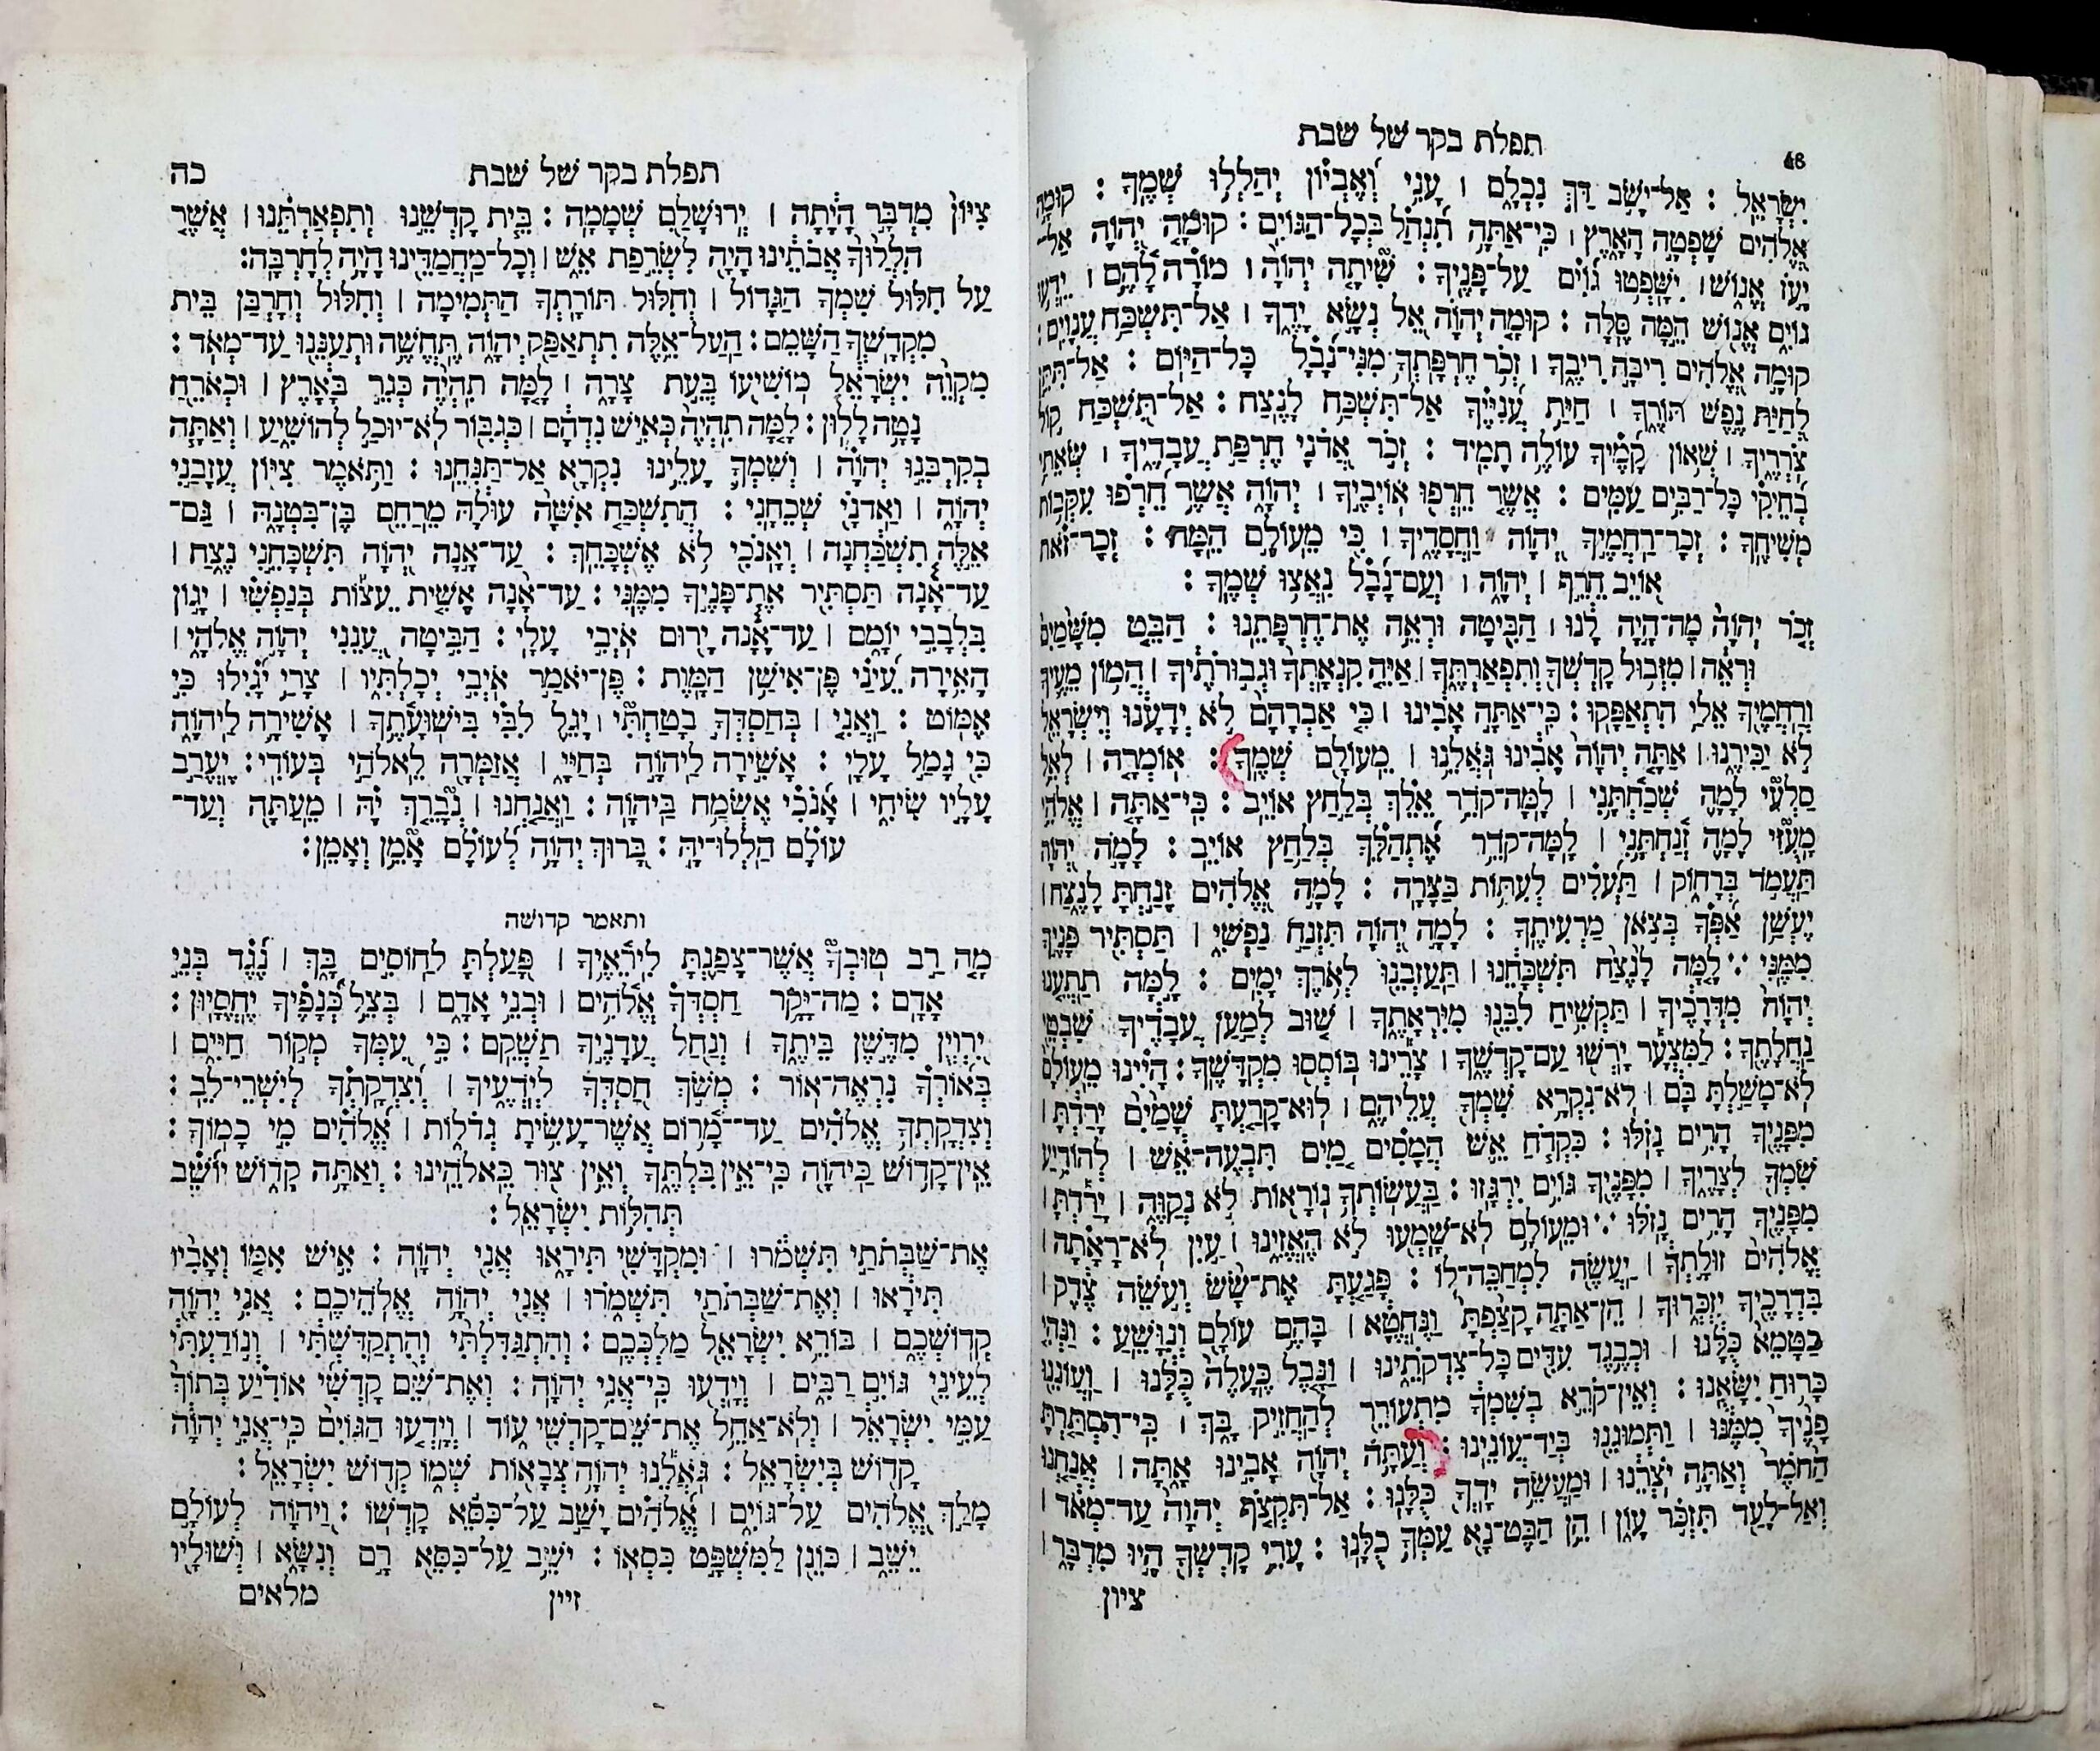 48
תפלת בקר של שבת
ישראל : אל־ישב דך נכלם ׀ עני ואביון יהללו שמך : קומה
אלהים שפטה הארץ ׀ כי־אתה תנחל בכל־הגוים : קומה יהוה אל־
יעז אנוש ׀ ישפטו גוים על־פניך : שיתה יהוה ׀ מורה להם ׀ ידעו
גוים אנוש המה סלה : קומה יהוה אל נשא ידך ׀ אל־תשכח ענוים :
קומה אלהים ריבה ריבך ׀ זכר חרפתך מני־נבל כל־היום : אל־תתן
לחית נפש תורך ׀ חית ענייך אל־תשכח לנצח : אל־תשכח קול
צרריך ׀ שאון קמיך עולה תמיד : זכר אדני חרפת עבדיך ׀ שאתי
בחיקי כל־רבים עמים : אשר חרפו אויביך ׀ יהוה אשר חרפו עקבות
משיחך : זכר־רחמיך יהוה וחסדיך ׀ כי מעולם המה : זכר־זאת
אויב חרף ׀ יהוה ׀ ועם־נבל נאצו שמך :
זכר יהוה מה־היה לנו ׀ הביטה וראה את־חרפתנו : הבט משמים
וראה ׀ מזבול קדשך ותפארתך ׀ איה קנאתך וגבורתיך ׀ המון מעיך
ורחמיך אלי התאפקו : כי־אתה אבינו ׀ כי אברהם לא ידענו וישראל
לא יכירנו ׀ אתה יהוה אבינו גאלנו ׀ מעולם שמך : אומרה ׀ לאל
סלעי למה שכחתני ׀ למה־קדר אלך בלחץ אויב : כי־אתה ׀ אלהי
מעזי למה זנחתני ׀ למה־קדר אתהלך בלחץ אויב : למה יהוה
תעמד ברחוק ׀ תעלים לעתות בצרה : למה אלהים זנחת לנצח ׀
יעשן אפך בצאן מרעיתך : למה יהוה תזנח נפשי ׀ תסתיר פניך
ממני : למה לנצח תשכחנו ׀ תעזבנו לארך ימים : למה תתענו
יהוה מדרכיך ׀ תקשיח לבנו מיראתך ׀ שוב למען עבדיך שבטי
נחלתך : למצער ירשו עם־קדשך ׀ צרינו בוססו מקדשך : היינו מעולם
לא־משלת בם ׀ לא־נקרא שמך עליהם ׀ לוא־קרעת שמים ירדת ׀
מפניך הרים נזלו : כקדח אש המסים מים תבעה־אש ׀ להודיע
שמך לצריך ׀ מפניך גוים ירגזו : בעשותך נוראות לא נקוה ׀ ירדת ׀
מפניך הרים נזלו : ומעולם לא־שמעו לא האזינו ׀ עין לא־ראתה ׀
אלהים זולתך ׀ יעשה למחכה־לו : פגעת את־שש ועשה צדק ׀
בדרכיך יזכרוך ׀ הן־אתה קצפת ונחטא ׀ בהם עולם ונושע : ונהי
כטמא כלנו ׀ וכבגד עדים כל־צדקתינו ׀ ונבל כעלה כלנו ׀ ועוננו
כרוח ישאנו : ואין־קרא בשמך מתעורר להחזיק בך ׀ כי־הסתרת
פניך ממנו ׀ ותמוגנו ביד־עונינו : ועתה יהוה אבינו אתה ׀ אנחנו
החמר ואתה יצרנו ׀ ומעשה ידך כלנו : אל־תקצף יהוה עד־מאד ׀
ואל־לעד תזכר עון ׀ הן הבט־נא עמך כלנו : ערי קדשך היו מדבר ׀
ציון
תפלת בקר של שבת
כה
ציון מדבר היתה ׀ ירושלם שממה : בית קדשנו ותפארתנו ׀ אשר
הללוך אבתינו היה לשרפת אש ׀ וכל־מחמדינו היה לחרבה :
על חלול שמך הגדול ׀ וחלול תורתך התמימה ׀ וחלול וחרבן בית
מקדשך השמם : העל־אלה תתאפק יהוה תחשה ותעננו עד־מאד :
מקוה ישראל מושיעו בעת צרה ׀ למה תהיה כגר בארץ ׀ וכארח
נטה ללון : למה תהיה כאיש נדהם ׀ כגבור לא־יוכל להושיע ׀ ואתה
בקרבנו יהוה ׀ ושמך עלינו נקרא אל־תנחנו : ותאמר ציון עזבני
יהוה ׀ ואדני שכחני : התשכח אשה עולה מרחם בן־בטנה ׀ גם־
אלה תשכחנה ׀ ואנכי לא אשכחך : עד־אנה יהוה תשכחני נצח ׀
עד־אנה תסתיר את־פניך ממני : עד־אנה אשית עצות בנפשי ׀ יגון
בלבבי יומם ׀ עד־אנה ירום איבי עלי : הביטה ענני יהוה אלהי ׀
האירה עיני פן־אישן המות : פן־יאמר איבי יכלתיו ׀ צרי יגילו כי
אמוט : ואני ׀ בחסדך בטחתי ׀ יגל לבי בישועתך ׀ אשירה ליהוה
כי גמל עלי : אשירה ליהוה בחיי ׀ אזמרה לאלהי בעודי : יערב
עליו שיחי ׀ אנכי אשמח ביהוה : ואנחנו ׀ נברך יה ׀ מעתה ועד־
עולם הללו־יה : ברוך יהוה לעולם אמן ואמן :
ותאמר קדושה
מה רב טובך אשר־צפנת ליראיך ׀ פעלת לחוסים בך ׀ נגד בני
אדם : מה־יקר חסדך אלהים ׀ ובני אדם ׀ בצל כנפיך יחסיון :
ירוין מדשן ביתך ׀ ונחל עדניך תשקם : כי עמך מקור חיים ׀
באורך נראה־אור : משך חסדך לידעיך ׀ וצדקתך לישרי־לב :
וצדקתך אלהים עד־מרום אשר־עשית גדלות ׀ אלהים מי כמוך :
אין־קדוש כיהוה כי־אין בלתך ואין צור כאלהינו : ואתה קדוש יושב
תהלות ישראל :
את־שבתתי תשמרו ׀ ומקדשי תיראו אני יהוה : איש אמו ואביו
תיראו ׀ ואת־שבתתי תשמרו ׀ אני יהוה אלהיכם : אני יהוה
קדושכם ׀ בורא ישראל מלככם : והתגדלתי והתקדשתי ׀ ונודעתי
לעיני גוים רבים ׀ וידעו כי־אני יהוה : ואת־שם קדשי אודיע בתוך
עמי ישראל ׀ ולא־אחל את־שם־קדשי עוד ׀ וידעו הגוים כי־אני יהוה
קדוש בישראל : גאלנו יהוה צבאות שמו קדוש ישראל :
מלך אלהים על־גוים ׀ אלהים ישב על־כסא קדשו : ויהוה לעולם
ישב ׀ כונן למשפט כסאו : ישב על־כסא רם ונשא ׀ ושוליו
זיין
מלאים